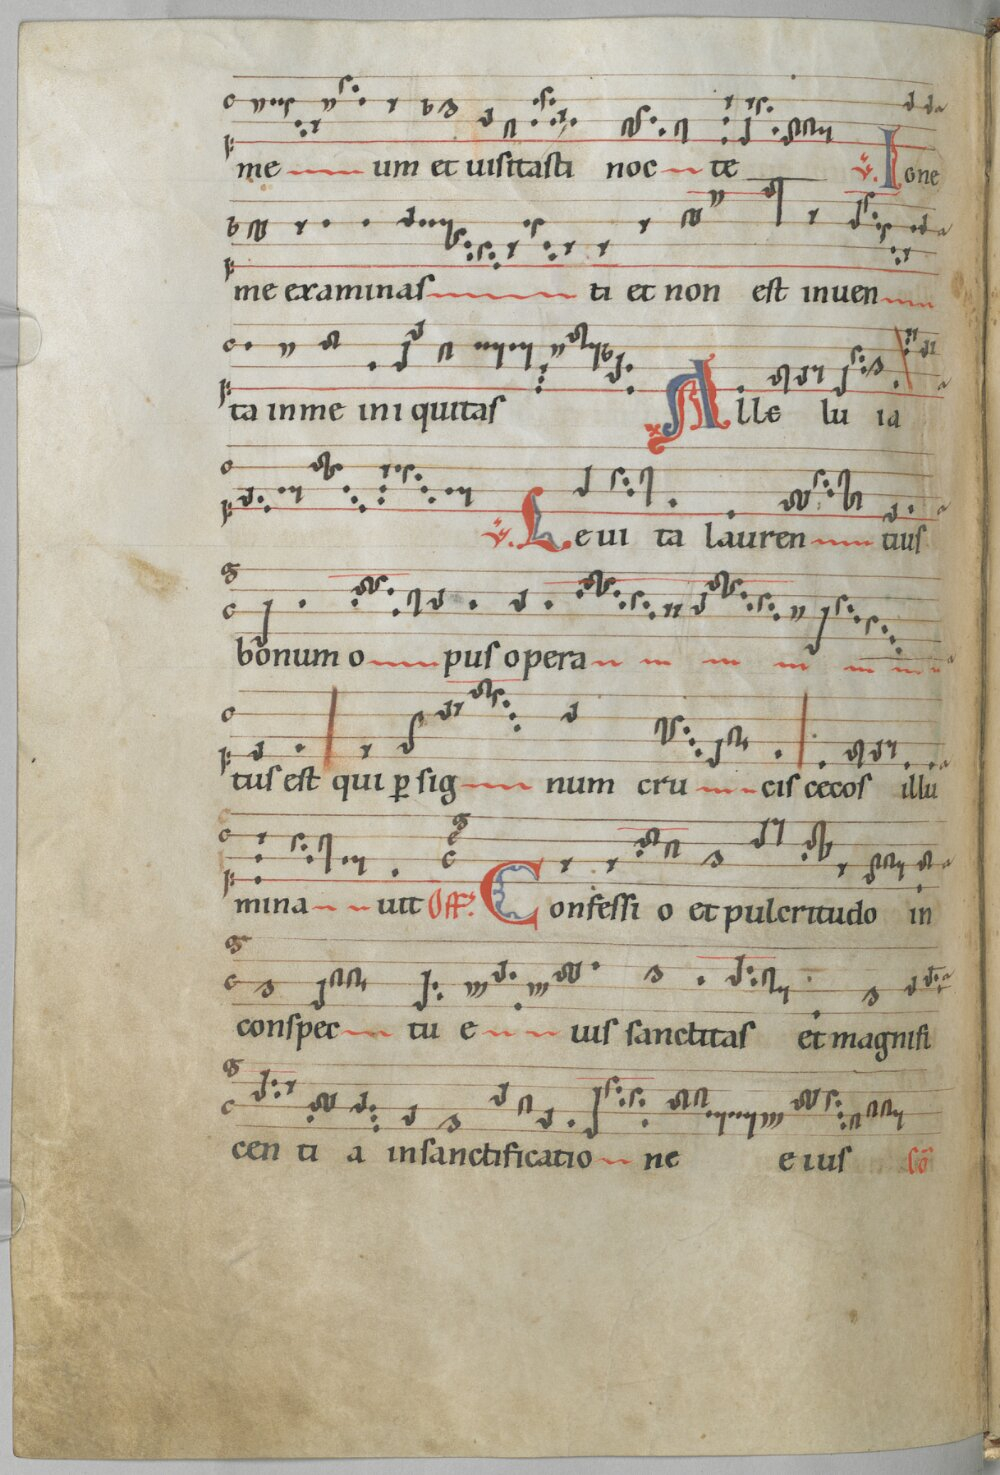 me um et uisitasti noc te ỹ. Igne
me examinas ti et non est inuen
ta in me iniquitas Alle lu ia
ỹ. Leuita lauren tius
bonum o pus opera
tus est qui ꝑ sig num cru cis cecos illu
mina uit Off. Confessio et pulcritudo in
conspec tu e ius sanctitas et magnifi
cen ti a in sanctificatio ne eius Cō